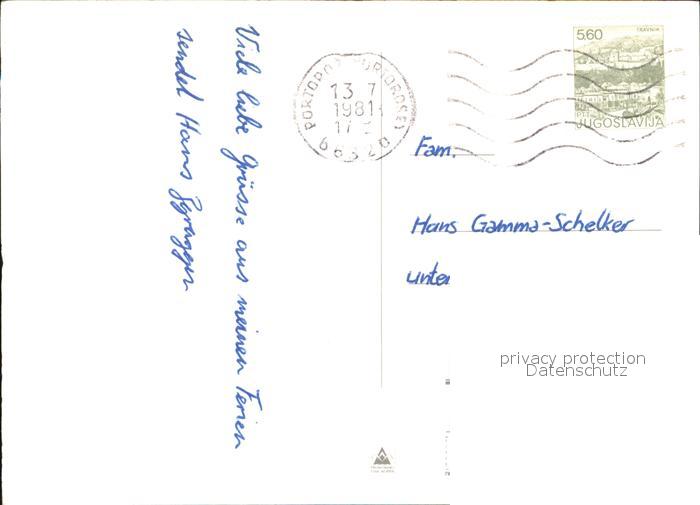 Viele liebe Grüsse aus meinen Ferien
sendet Hans
PORTOROŽ PORTOROSE
13 7
1981
17
66320
5.60
TRAVNIK
JUGOSLAVIJA
Fam.
Hans Gamma-Schelker
unte
privacy protection
Datenschutz